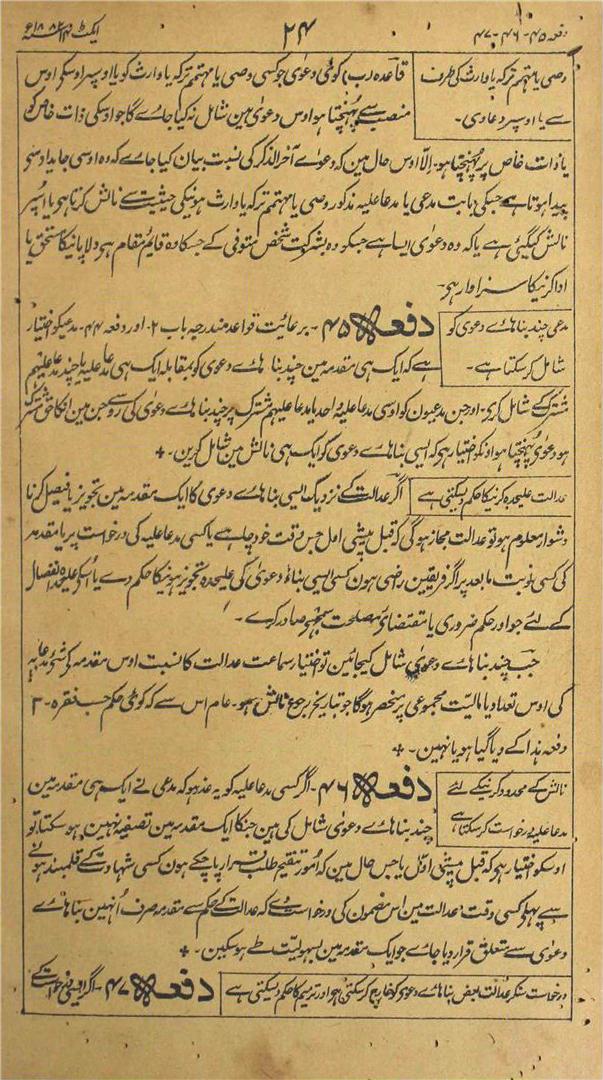 دفعہ ۴۵-۴۶-۴۷
۲۴
ایکٹ ۱۴ ۱۸۸۲ء
وصی یا مہتمم ترکہ یا وارث کی طرف
سے یا اوسپر دعاوی۔
قاعدہ (ب) کوئی دعویٰ جو کسی وصی یا مہتمم ترکہ یا وارث کو یا اوسپر اوسکی اوس
منصب سے پہنچتا ہو اوس دعوی مین شامل نہ کیا جاے گا جو اوسکی ذات خاص کو
یا ذات خاص پر پہنچتا ہو۔ اِلّا اوس حال مین کہ دعوے آخر الذکر کی نسبت بیان کیا جاے کہ وہ اوسی جایداد سے
پیدا ہوتا ہے جسکی بابت مدعی یا مدعا علیہ مذکور وصی یا مہتمم ترکہ یا وارث ہونیکی حیثیت سے نالش کرتا ہو یا اُسپر
نالش کیگئی ہے یا کہ وہ دعویٰ ایسا ہے جسکو وہ بشرکت شخص متوفی کے جسکا وہ قایم مقام ہی دلا پانیکا مستحق یا
ادا کرنیکا سزاوار ہو۔
مدعی چند بنا ہاے دعوی کو
شامل کر سکتا ہے۔
دفعہ ۴۵۔ برعایت قواعد مندرجہ باب ۲۔ اور دفعہ ۴۴۔ مدعیکو اختیار
ہے کہ ایک ہی مقدمہ مین چند بنا ہاے دعوی کو بمقابلہ ایک ہی مدعا علیہ یا چند مدعا علیہم
مشترک کے شامل کری۔ اور جن مدعیون کو اوسی مدعا علیہ واحد یا مدعا علیہم مشترک پر چند بنا ہاے دعویٰ کی رو سے جن مین انکا حق مشترک
ہو دعویٰ پہنچتا ہو اونکو اختیار ہو کہ ایسی بنا ہاے دعوی کو ایک ہی نالش مین شامل کرین۔ +
عدالت علیحدہ کرنیکا حکم دیسکتی ہے
اگر عدالت کے نزدیک ایسی بنا ہاے دعوی کا ایک مقدمہ مین تجویز یا فیصل کرنا
دشوار معلوم ہو تو عدالت مجاز ہوگی کہ قبل پیشی اول جس وقت خود چاہے یا کسی مدعا علیہ کی درخواست پر یا مقدمہ
کی کسی نوبت ما بعد پر اگر فریقین راضی ہون کسی ایسی بناء دعویٰ کی علیحدہ تجویز ہونیکا حکم دے یا اُسکے علیحدہ انفصال
کے لئے جو اور حکم ضروری یا مقتضاے مصلحت سمجھے صادر کرے۔
جب چند بنا ہاے دعویٰ شامل کیجائین تو اختیار سماعت عدالت کا نسبت اوس مقدمہ کے شی مدعا بہ
کی اوس تعداد یا مالیّت مجموعی پر منحصر ہوگا جو بتاریخ رجوع نالش ہو۔ عام اس سے کہ کوئی حکم حسب فقرہ ۲۔
دفعہ ہذا کے دیا گیا ہو یا نہین۔ +
نالش کے محدود کرنیکے لئے
مدعا علیہ درخواست کر سکتا ہے
دفعہ ۴۶۔ اگر کسی مدعا علیہ کو یہ عذر ہو کہ مدعی نے ایک ہی مقدمہ مین
چند بنا ہاے دعویٰ شامل کی ہین جنکا ایک مقدمہ مین تصفیہ نہین ہو سکتا تو
اوسکو اختیار ہو کہ قبل پیشی اوّل یا جس حال مین کہ اُمور تنقیح طلب قرار پا چکے ہون کسی شہادت کے قلمبند ہونے
سے پہلے کسی وقت عدالت مین اس مضمون کی درخواست دے کہ عدالت کے حکم سے مقدمہ صرف اُنہین بنا ہاے
دعوی سے متعلق قرار دیا جاے جو ایک مقدمہ مین بسہولیّت طے ہو سکین۔ +
درخواست سنکر عدالت بعض بنا ہاے دعوی کو خارج کر سکتی ہو اور ترمیم کا حکم دیسکتی ہے
دفعہ ۴۷۔ اگر